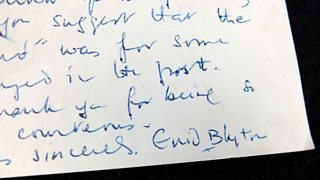 you suggest that the
" was for some
in the post.
thank you for being so
courteous.
sincerely. Enid Blyton